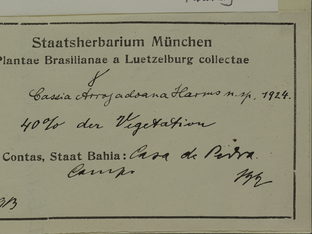 Staatsherbarium München
Plantae Brasilianae a Luetzelburg collectae
Cassia Arrojadoana Harms n. sp. 1924.
40% der Vegetation
Contas, Staat Bahia: Casa de Pedra.
Campo